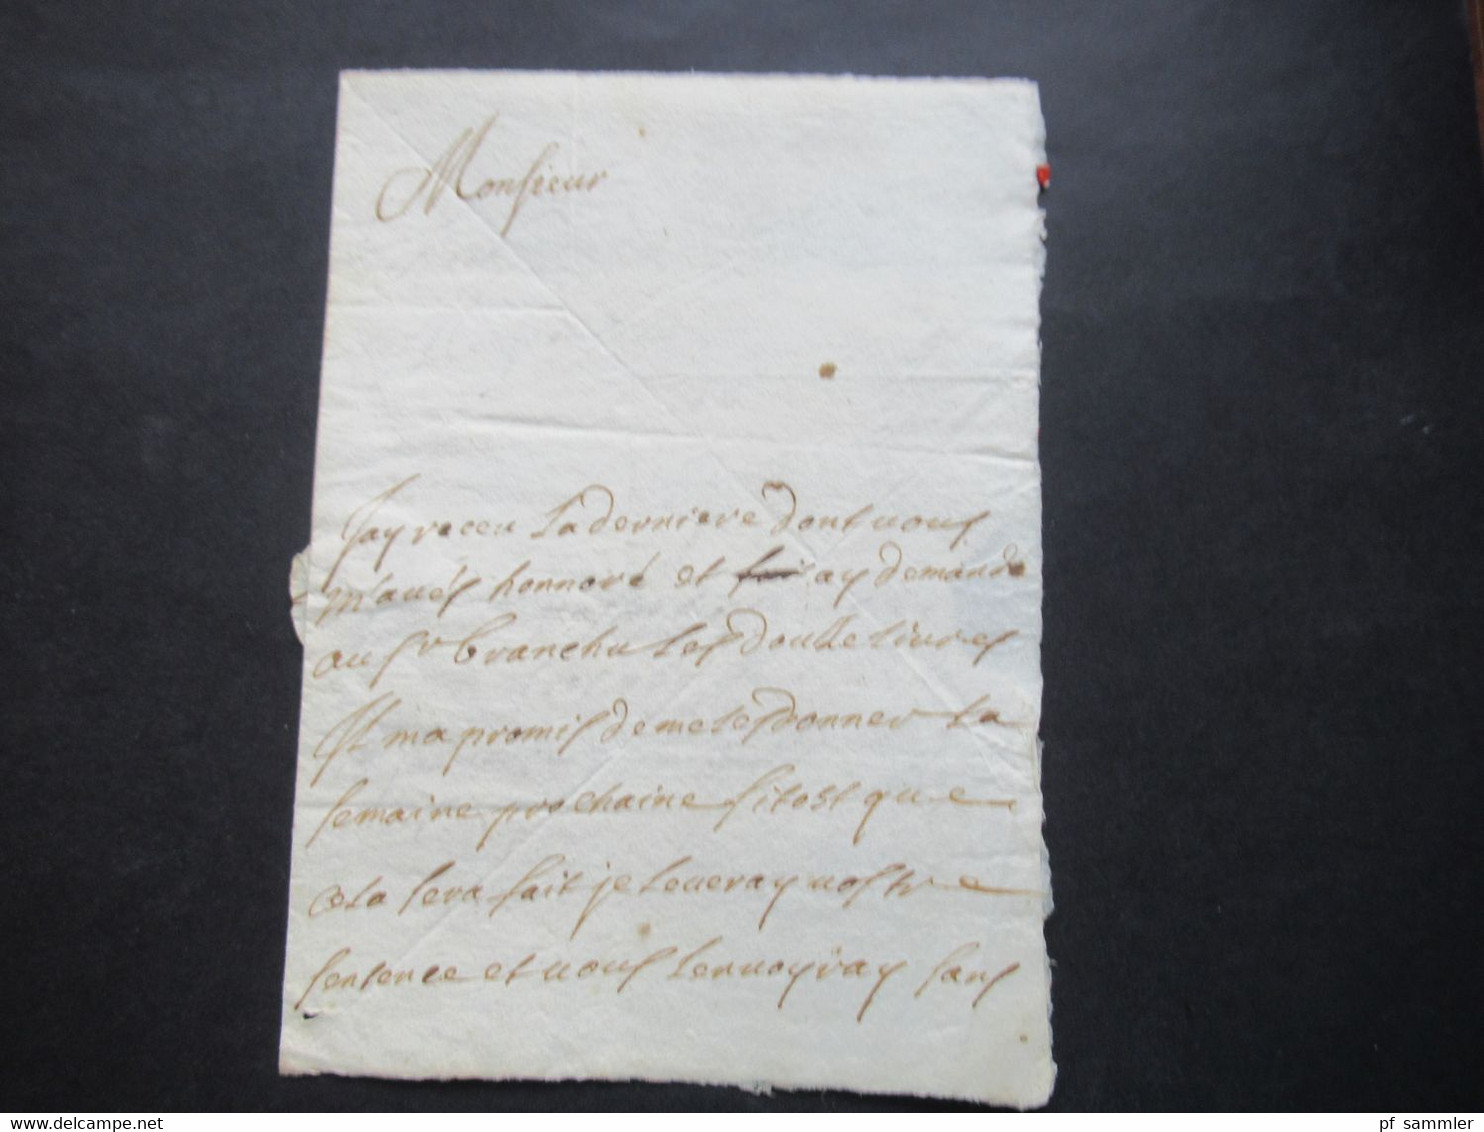 Monsieur
Jay receu La derniere dont vous
m'aués honnoré et ay demandé
au Sr branchu Les douze livres
Il ma promis de me Les donner La
semaine prochaine sitost que
cela sera fait je Leueray vostre
sentence et vous Lenvoyray sans
www.delcampe.net
pf_sammler